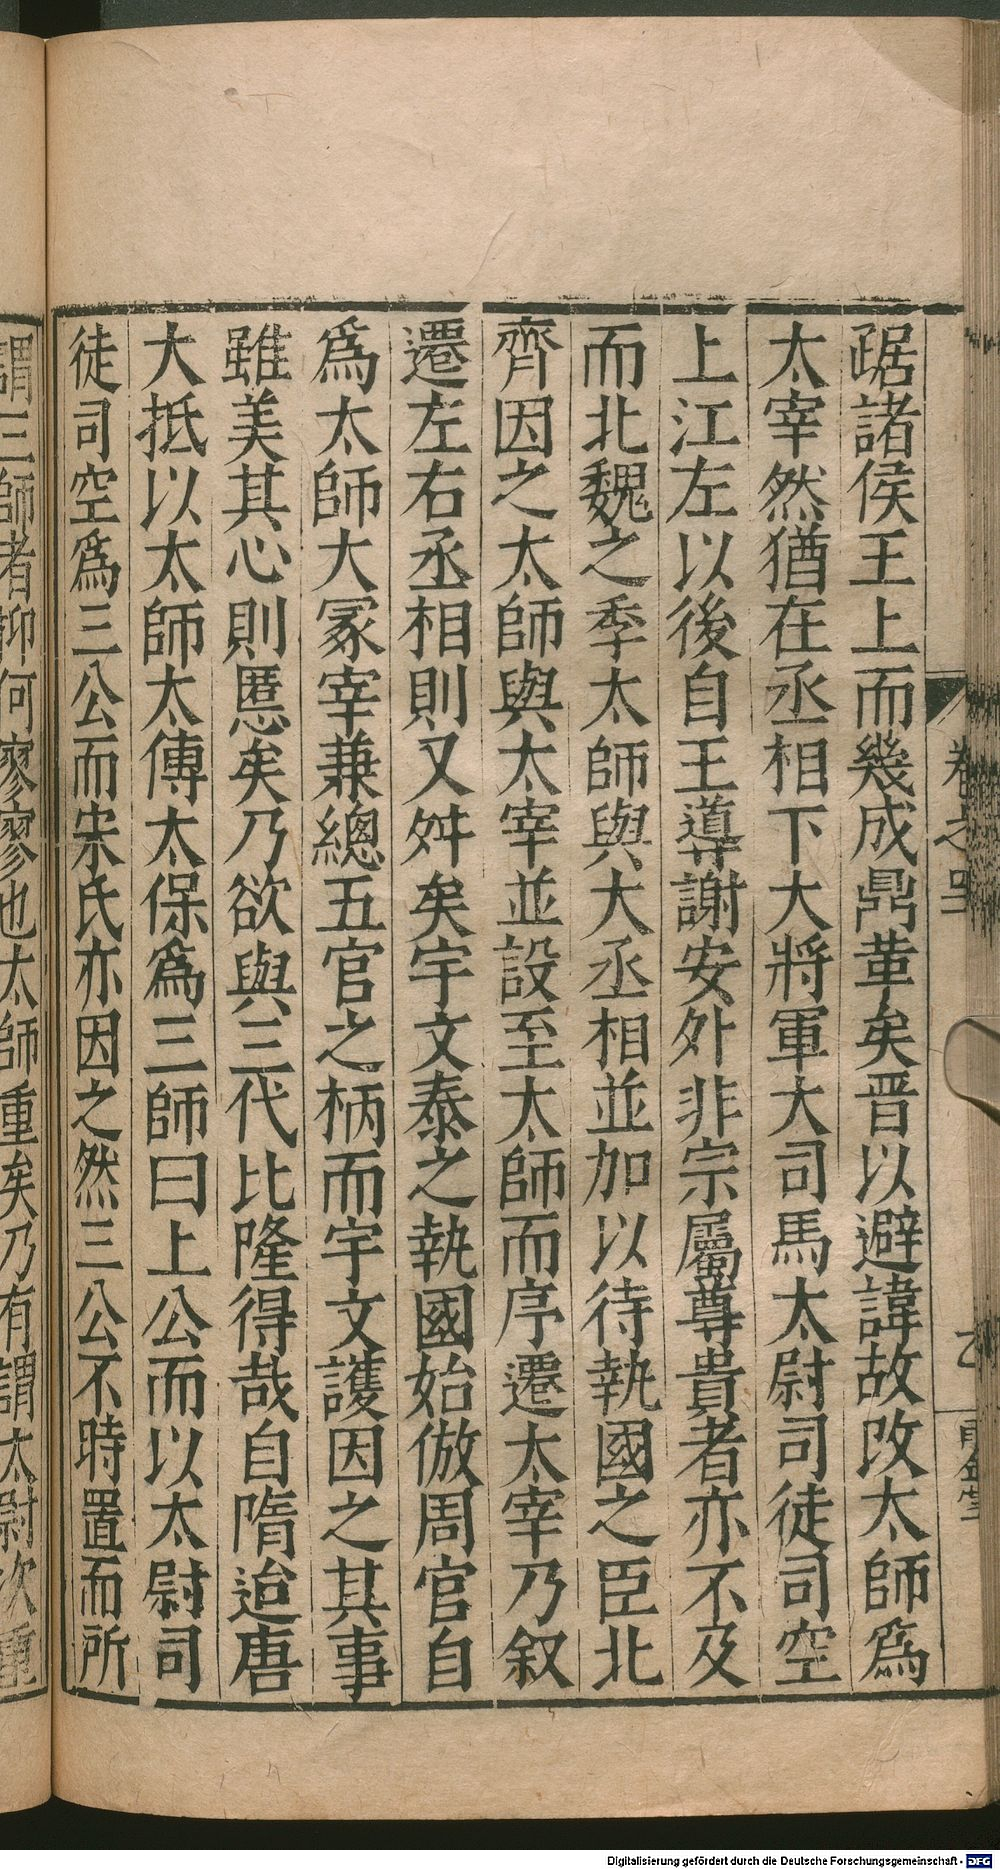 踞諸侯王上而幾成鼎董矣晋以避諱故改太師爲
太宰然猶在丞相下大將軍大司馬太尉司徒司空
上江左以後自王導謝安外非宗屬尊貴者亦不及
而北魏之季太師與大丞相並加以待執國之臣北
齊因之太師與太宰並設至太師而序遷太宰乃叙
遷左右丞相則又舛矣宇文泰之執國始倣周官自
爲太師大冢宰兼總五官之柄而宇文護因之其事
雖美其心則慝矣乃欲與三代比隆得哉自隋迨唐
大抵以太師太傅太保爲三師曰上公而以太尉司
徒司空爲三公而宋氏亦因之然三公不時置而所
謂三師者抑何寥寥也太師重矣乃有謂太尉次重
卷之四
Digitalisierung gefördert durch die Deutsche Forschungsgemeinschaft - DFG